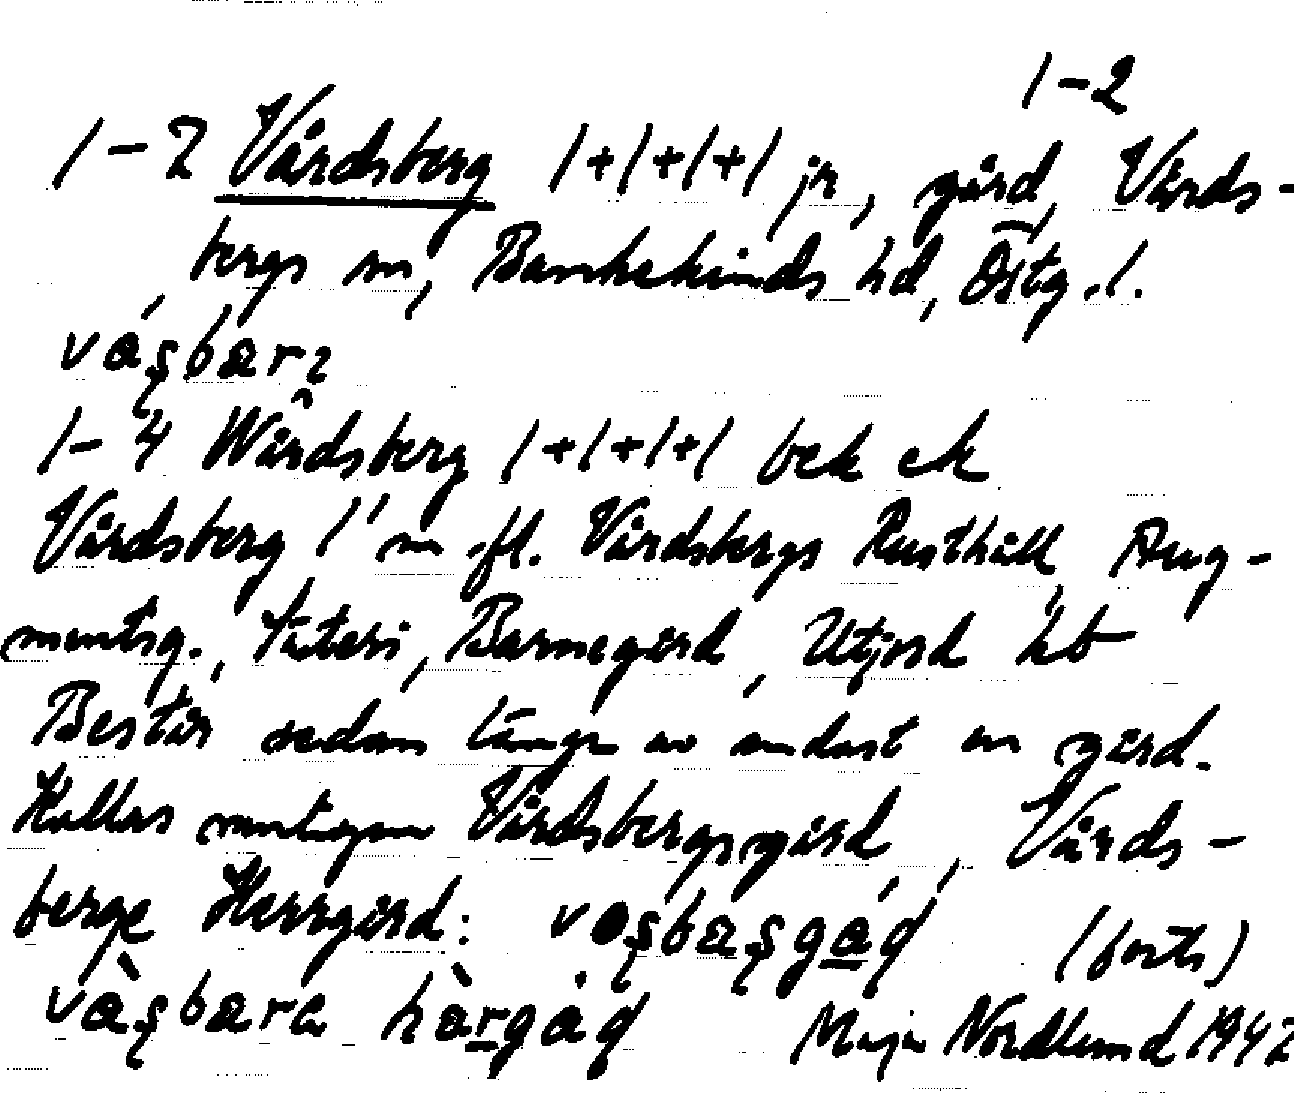 1-2
1-2 Vårdsberg 1+1+1+1 jr, gård, Vårds-
bergs sn, Bankekinds hd, Östg. l.
våʂbærɜ
1-4 Wårdsberg 1+1+1+1 bek ek
Vårdsberg 1 m. fl. Vårdsbergs Rusthåll, Aug-
mentsg., Säteri, Barnegård, Utjord hb
Består sedan länge av endast en gård.
Kallas antingen Vårdsbergsgård, Vårds-
berge Herrgård: vaʂbæʂgaɖ (forts)
våʂbæra hærgåɖ Maja Nordlund 1942